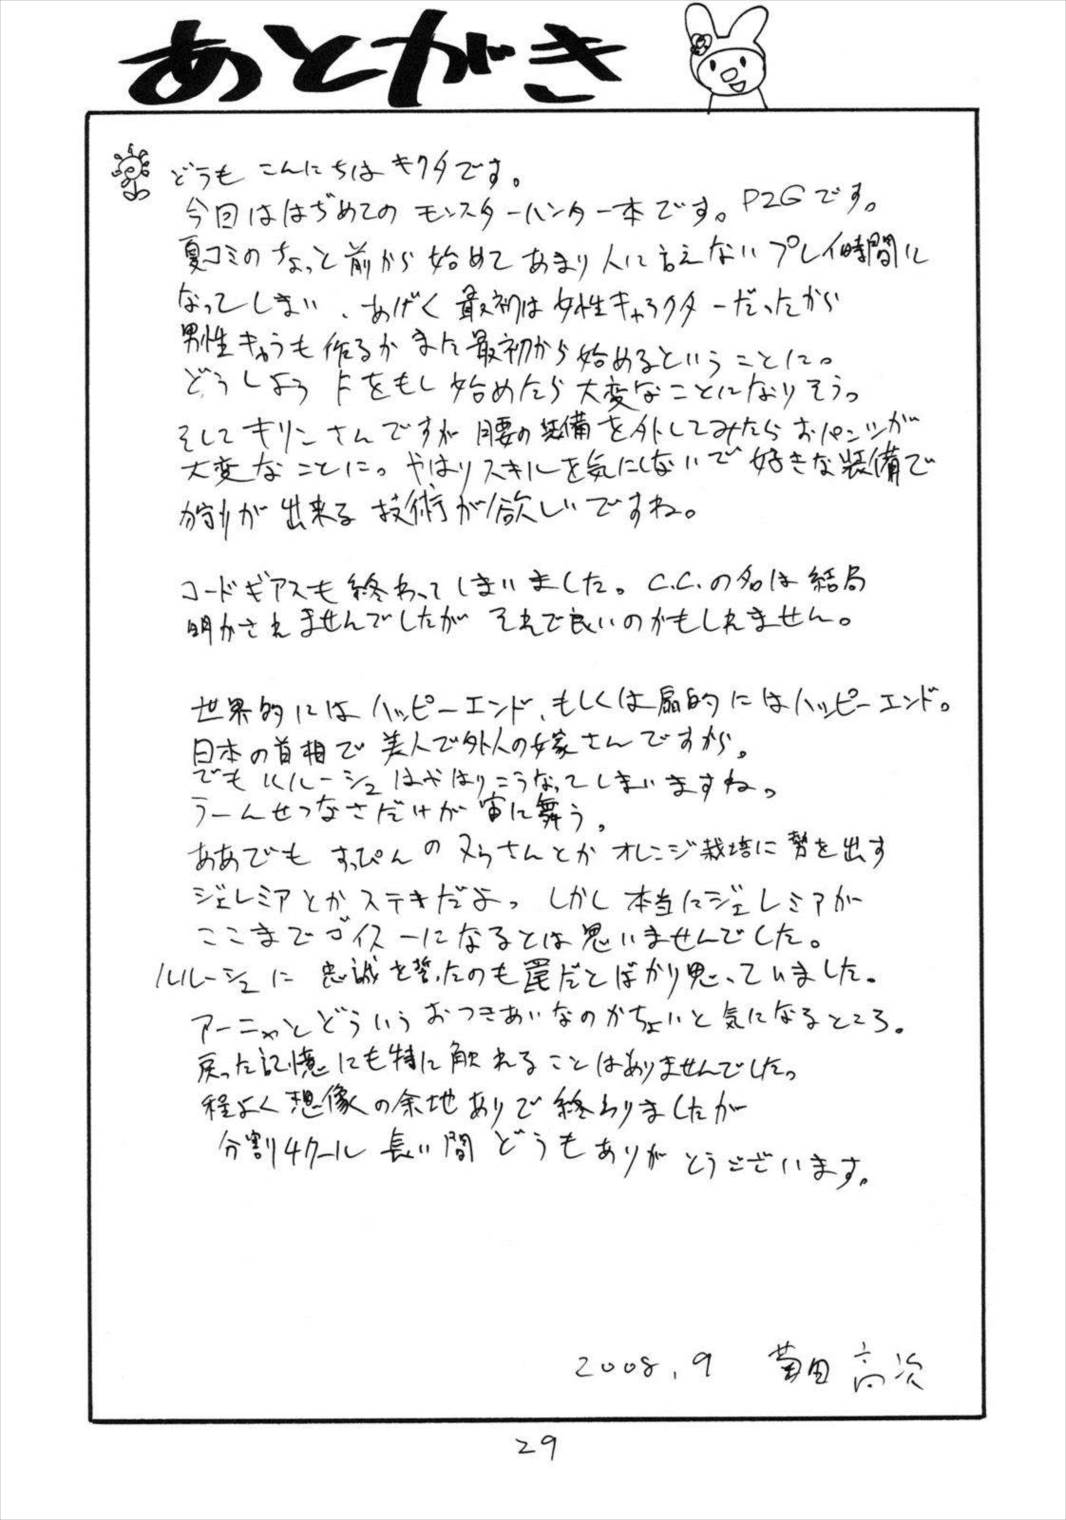 あとがき
どうも こんにちは キクタです。
今回ははぢめての モンスターハンター本です。P2Gです。
夏コミのちょっと前から始めて あまり人に言えない プレイ時間に
なってしまい、あげく 最初は女性キャラクターだったから
男性キャラも作るか また最初から始めるということに。
どうしよう Fをもし始めたら大変なことになりそう。
そしてキリンさんですが 腰の装備を外してみたらおパンツが
大変なことに。やはりスキルを気にしないで好きな装備で
狩りが出来る技術が欲しいですね。
コードギアスも終わってしまいました。C.C.の名は結局
明かされませんでしたが それで良いのかもしれません。
世界的にはハッピーエンド、もしくは扇的にはハッピーエンド。
日本の首相で美人で外人の嫁さんですから。
でもルルーシュはやはりこうなってしまいますね。
うーんせつなさだけが宙に舞う。
ああでも すっぴんのヌゥさんとか オレンジ栽培に勢を出す
ジェレミアとか ステキだよ。しかし本当にジェレミアが
ここまでゴイスーになるとは思いませんでした。
ルルーシュに 忠誠を誓ったのも罠だとばかり思っていました。
アーニャとどういうおつきあいなのかちょいと気になるところ。
戻った記憶にも特に触れることはありませんでした。
程よく想像の余地ありで終わりましたが
分割4クール 長い間 どうもありがとうございます。
2008.9 菊田 高次
29